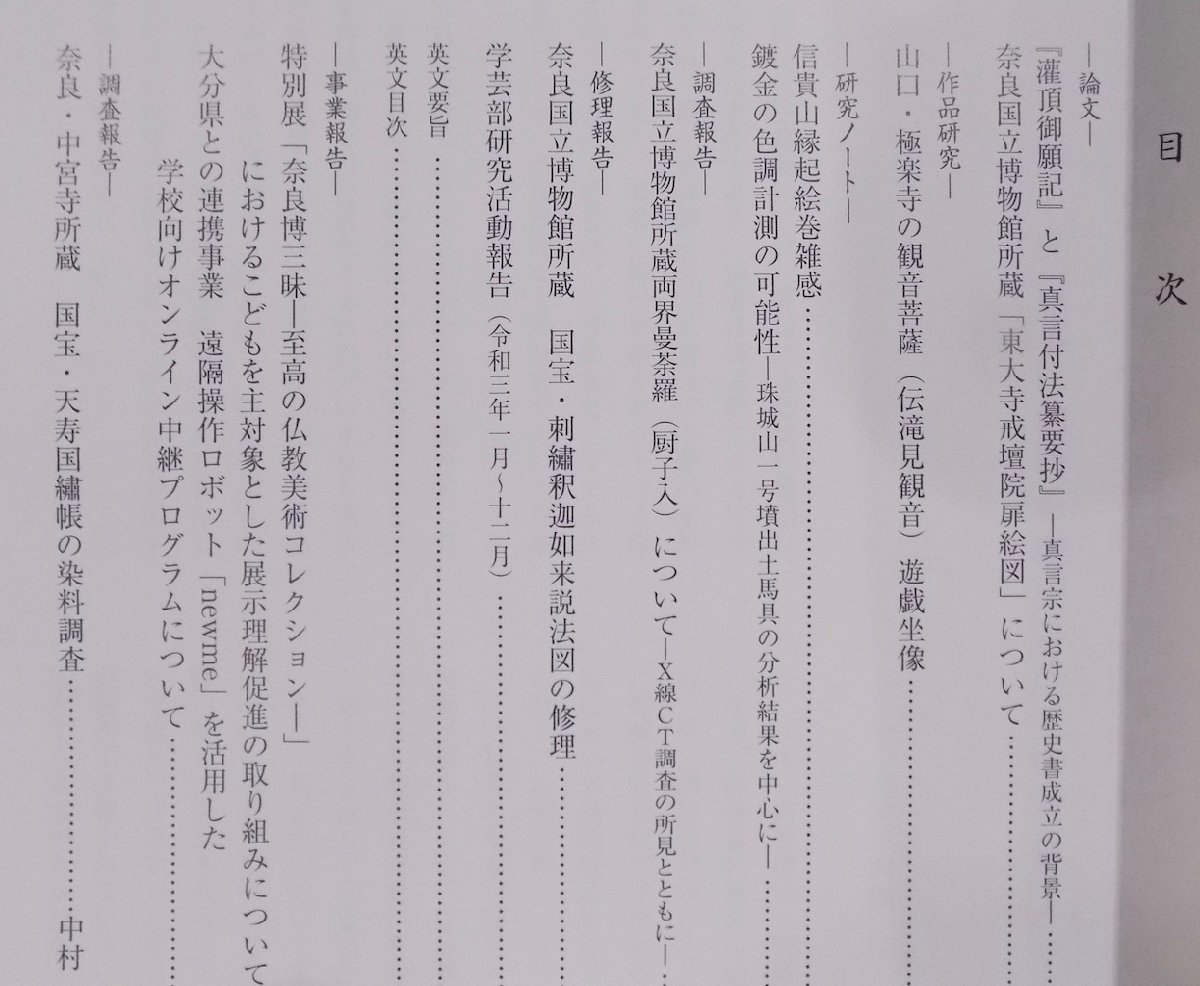 目次
―論文―
『灌頂御願記』と『真言付法纂要抄』―真言宗における歴史書成立の背景―……
奈良国立博物館所蔵「東大寺戒壇院扉絵図」について……
―作品研究―
山口・極楽寺の観音菩薩（伝滝見観音）遊戯坐像……
―研究ノート―
信貴山縁起絵巻雑感……
鍍金の色調計測の可能性―珠城山一号墳出土馬具の分析結果を中心に―……
―調査報告―
奈良国立博物館所蔵両界曼荼羅（厨子入）について―Ｘ線ＣＴ調査の所見とともに―……
―修理報告―
奈良国立博物館所蔵　国宝・刺繡釈迦如来説法図の修理……
学芸部研究活動報告（令和三年一月～十二月）……
英文要旨……
英文目次……
―事業報告―
特別展「奈良博三昧―至高の仏教美術コレクション―」
におけるこどもを主対象とした展示理解促進の取り組みについて
大分県との連携事業　遠隔操作ロボット「newme」を活用した
学校向けオンライン中継プログラムについて……
―調査報告―
奈良・中宮寺所蔵　国宝・天寿国繡帳の染料調査……中村